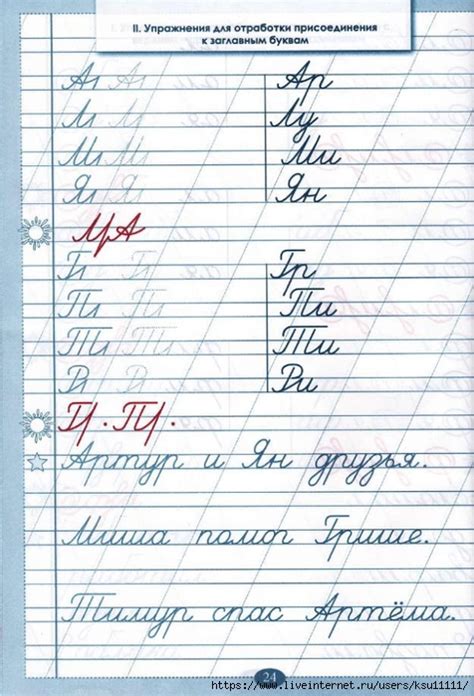 II. Упражнения для отработки присоединения
к заглавным буквам
Аı Аı Ар
Лı Лı Лу
Мı Мı Ми
Яı Яı Ян
Гı Гı Гр
Пı Пı Пи
Тı Тı Ти
Вı Вı Ви
Артур и Ян друзья.
Миша помог Грише.
Тимур спас Артёма.
24
https://www.liveinternet.ru/users/ksu11111/